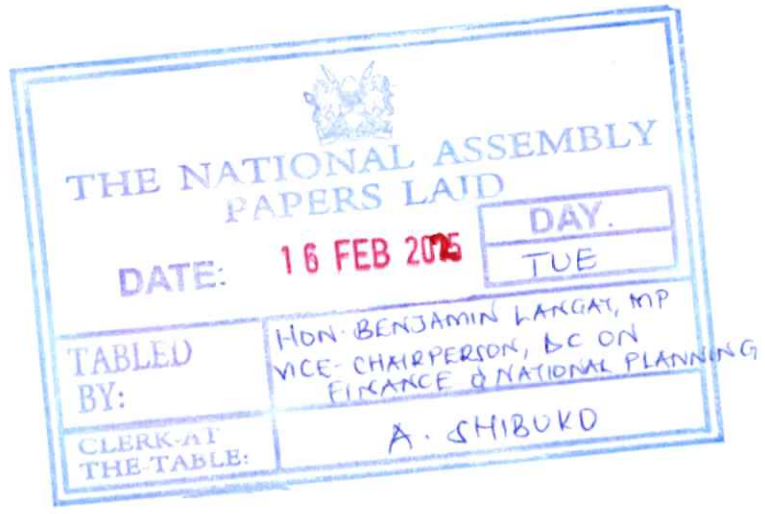 THE NATIONAL ASSEMBLY
PAPERS LAID
DATE: 16 FEB 2025
DAY.
TUE
TABLED
BY:
HON. BENJAMIN LANGAT, MP
VICE-CHAIRPERSON, DC ON
FINANCE & NATIONAL PLANNING
CLERK-AT
THE-TABLE:
A. SHIBUKO